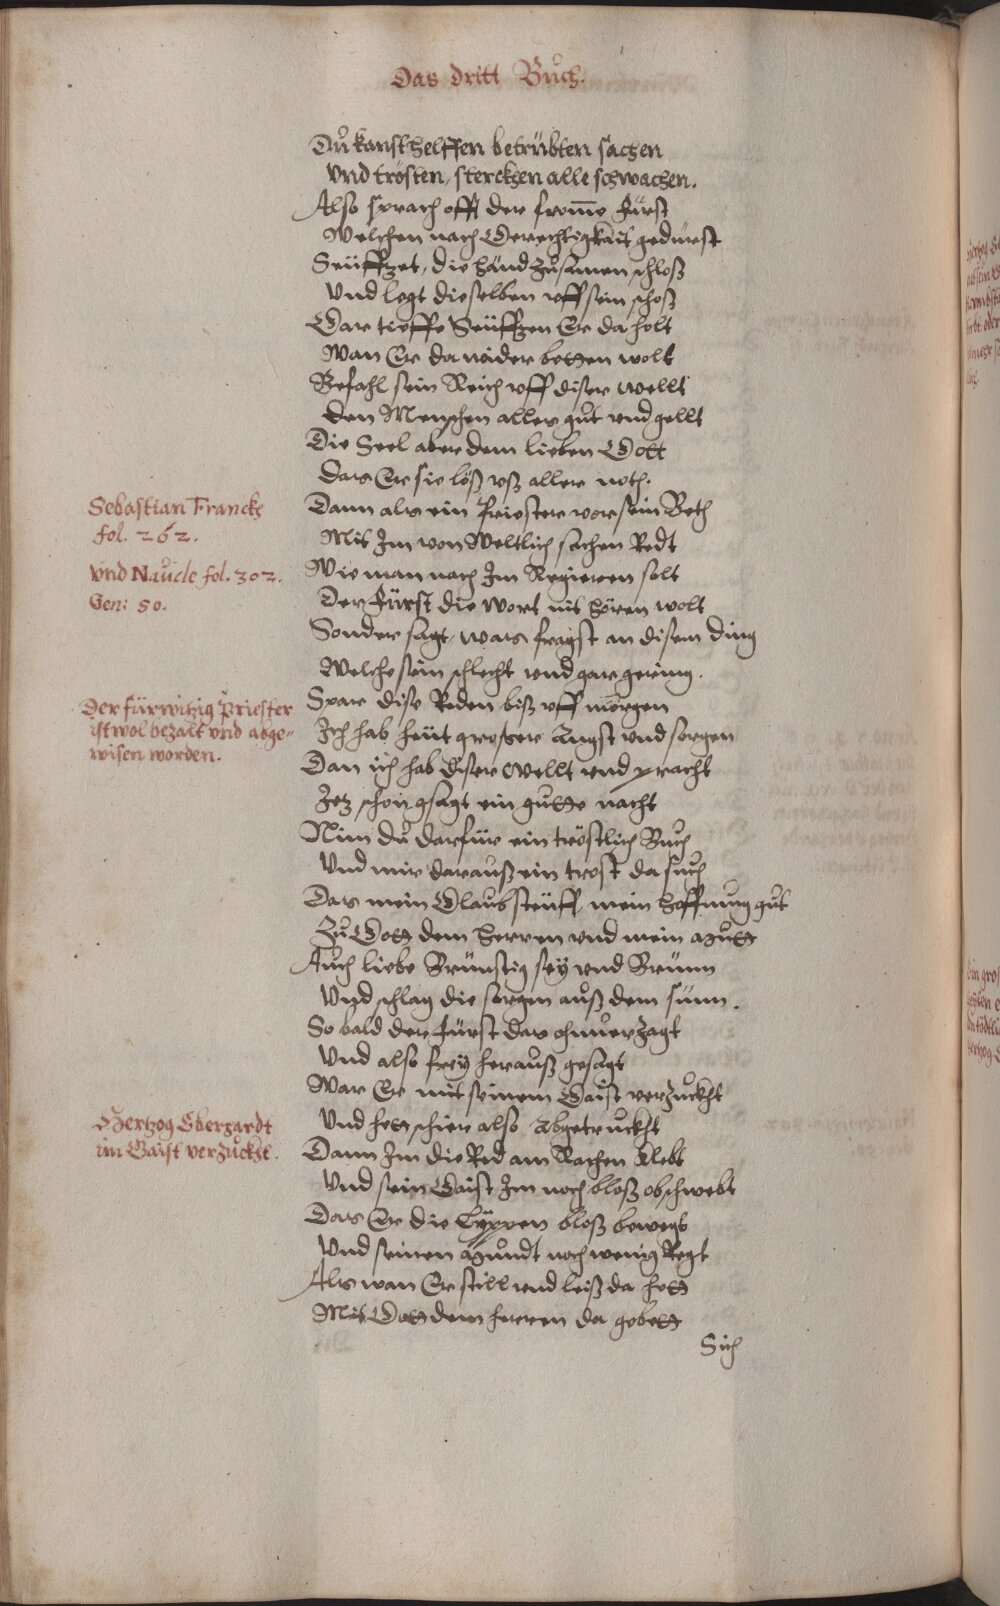 Das dritt Buch.
Du kanst helffen betrübten sachen
Vnd trösten, sterckhen alle schwachen.
Also sprach offt der fromme Fürst
Welchen nach Gerechtigkait gedürst
Seüffzet, die händ zusamen schloß
Vnd legt dieselben vff sein schoß
Gar tieffe Seüffzen Er da holt
Wan Er da nider betten wolt
Befahl sein Reich vff diser wellt
Den Menschen alles gut vnd gellt
Die Seel aber dem lieben Gott
Das Er sie löß vß aller noth.
Sebastian Franckh
fol. 262.
Vnd Naucle fol. 302.
Gen: 50.
Dann als ein Priester vor sein Beth
Mit Im von Weltlich sachen Redt
Wie man nach Im Regieren solt
Der Fürst die wort nit hören wolt
Sonder sagt, was fragst an disem ding
Welche sein schlecht vnd gar gering.
Der fürwitzig Priester
ist wol bezalt vnd abge-
wisen worden.
Spar dise Reden biß vff morgen
Ich hab heüt grosser Angst vnd sorgen
Dan ich hab diser wellt vnd pracht
Jetz schon gsagt ein gutte nacht
Nim du darfür ein tröstlich Buch
Vnd mir darauß ein trost da such
Das mein Glaub steüff, mein hoffnung gut
Zu Gott dem herren vnd mein mutt
Auch liebe Brünstig sey vnd Brünn
Vnd schlag die sorgen auß dem sünn.
So bald der Fürst das ohnuerzagt
Vnd also frey herauß gesagt
War Er mit seinem Gaist verzuckht
Vnd hett schier also Abgetruckht
Hertzog Eberhardt
im Gaist verzuckht.
Dann Im die Red am Rachen Klebt
Vnd sein Gaist Im noch bloß obschwebt
Das Er die Lyppen bloß bewegt
Vnd seinen Mundt noch wenig Regt
Als wan Er still vnd leiß da hett
Mit Gott dem herren da gebett
Sich